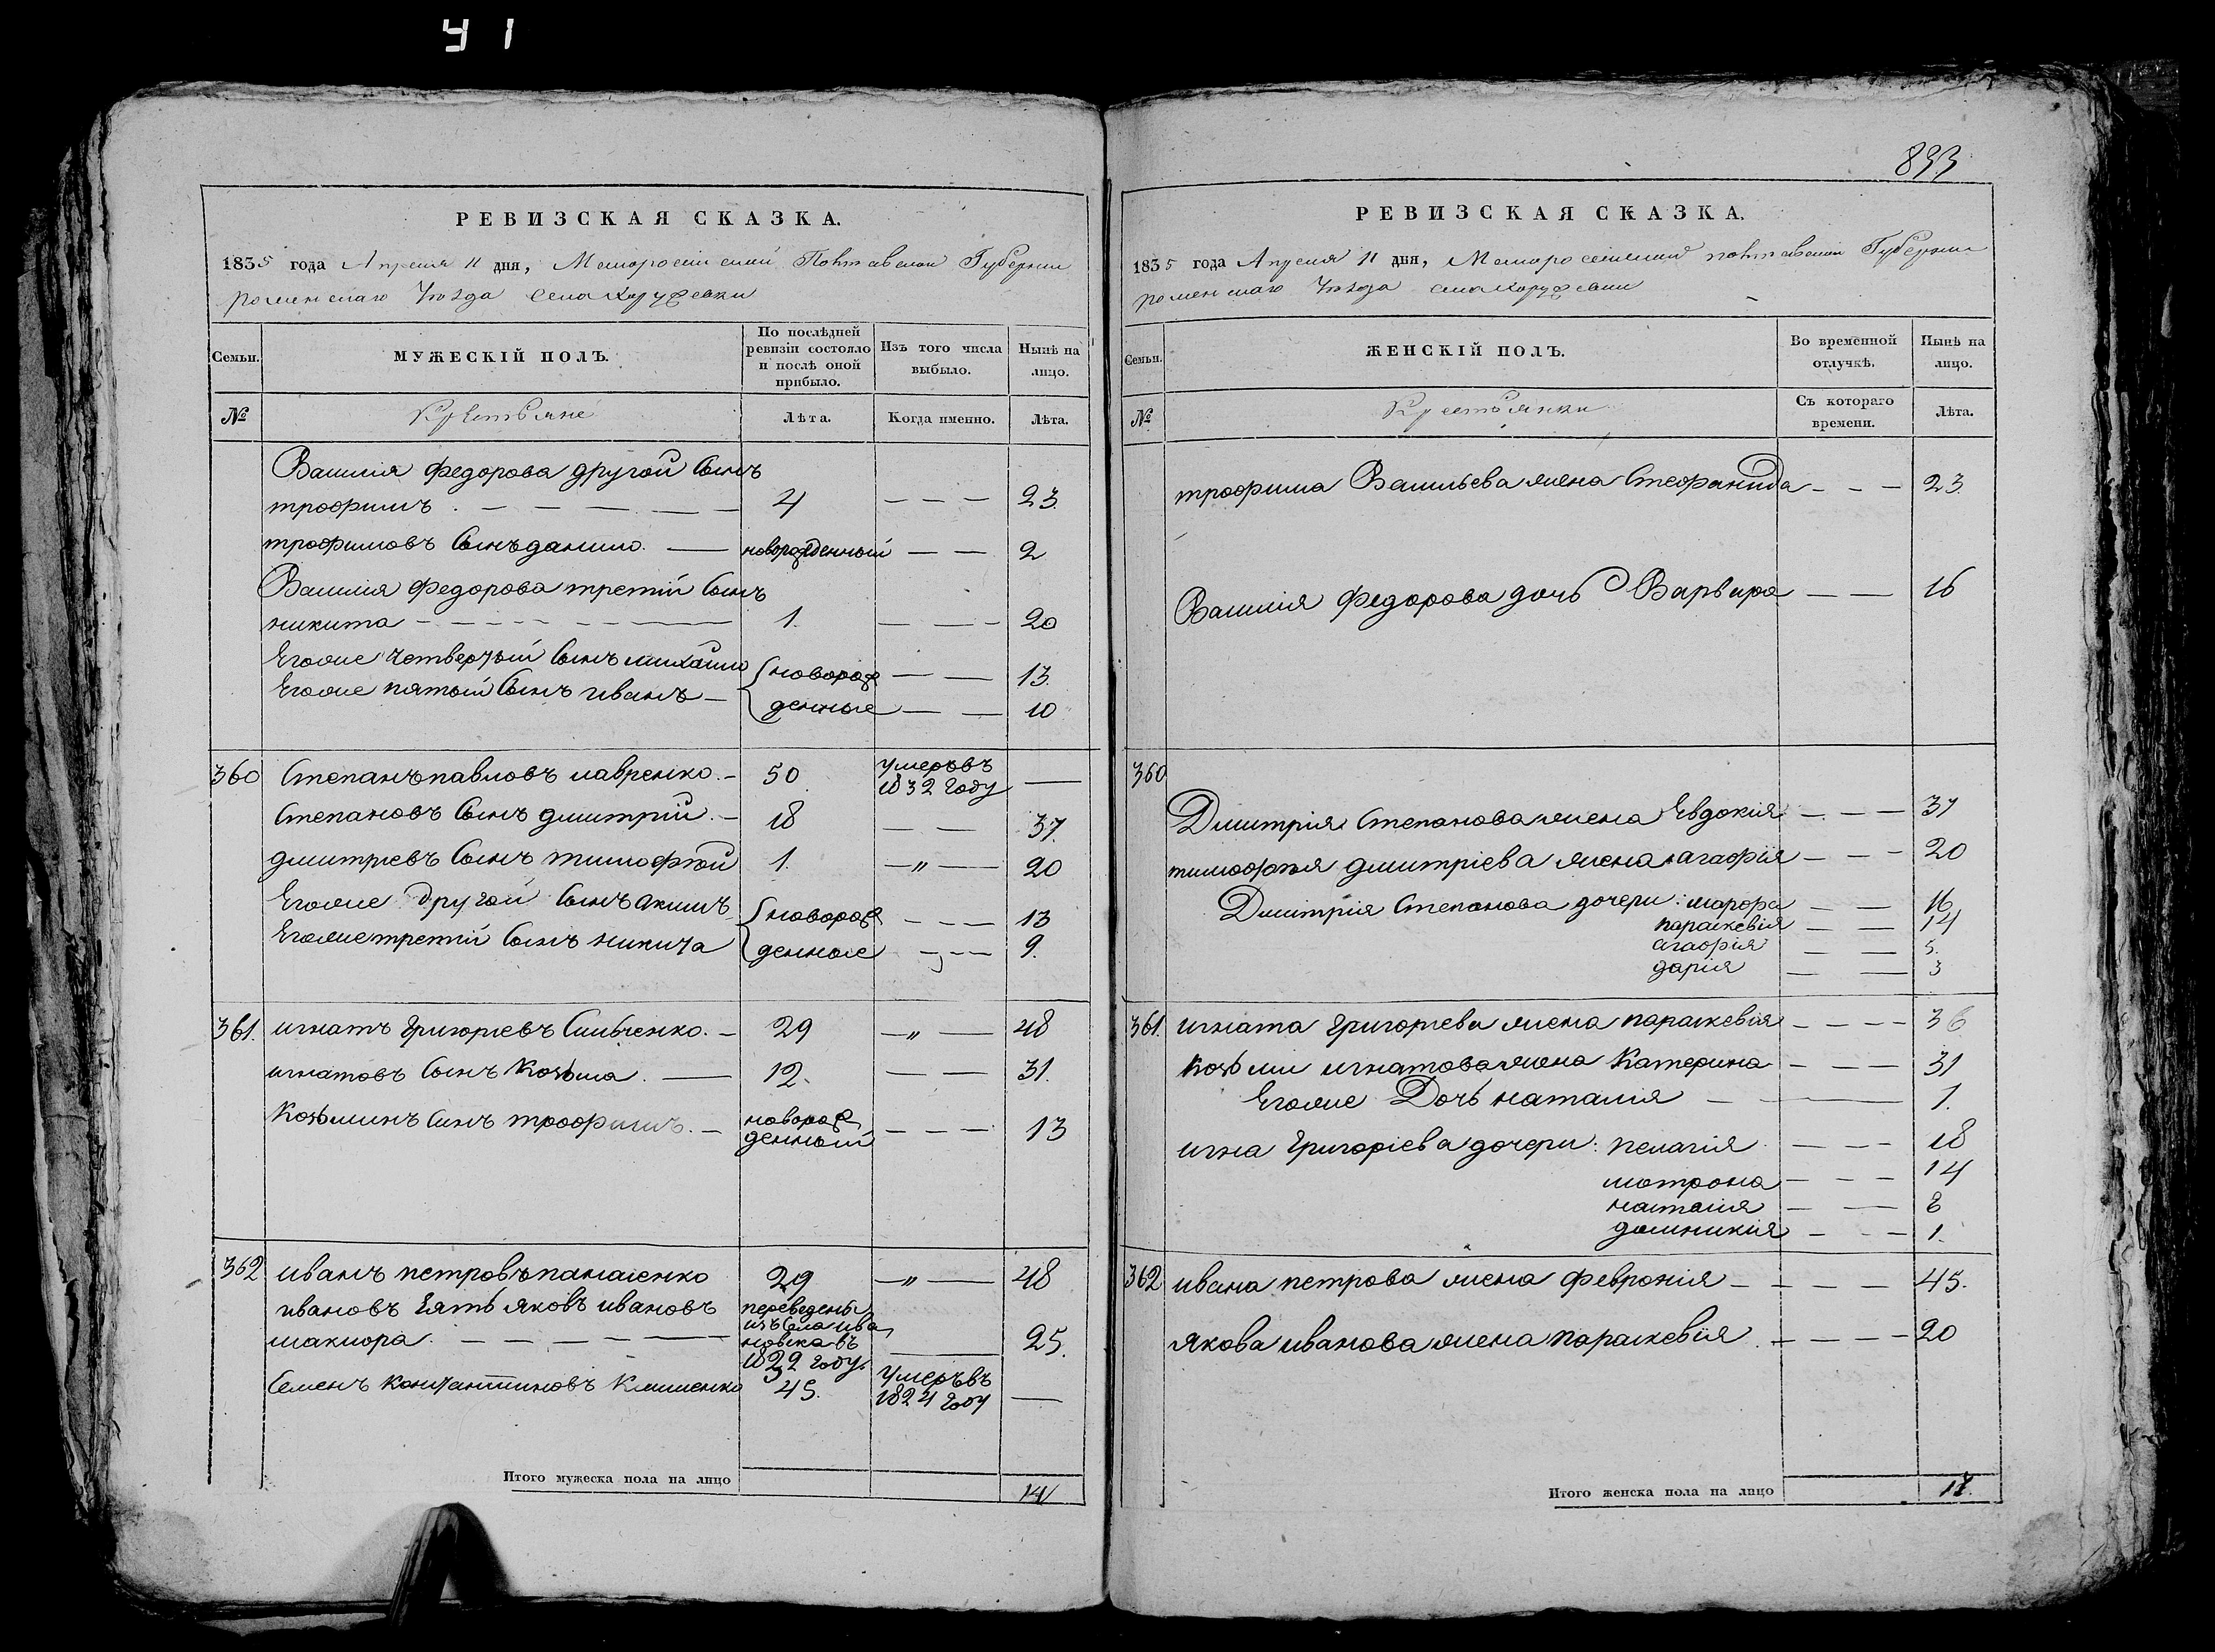 41
РЕВИЗСКАЯ СКАЗКА.
1835 года Апреля 11 дня, Малороссийской Полтавской Губернии
роменскаго Уѣзда села Хоружевки
Семьи.
МУЖЕСКІЙ ПОЛЪ.
По послѣдней ревизіи состояло и послѣ оной прибыло.
Изъ того числа выбыло.
Нынѣ на лицо.
№
Крестьяне
Лѣта.
Когда именно.
Лѣта.
Василия Федорова другой Сынъ
трофимъ. 4 23.
трофимовъ Сынъ данило. новорожденный 2
Василия Федорова третій Сынъ
никита 1. 20
Егоже четвертый Сынъ михайло новорож 13.
Егоже пятый Сынъ иванъ денные 10
360 Степанъ павловъ лавренко. 50 умеръ въ 1832 году
Степановъ Сынъ дмитрій. 18 37.
дмитріевъ Сынъ тимофѣй 1. 20
Егоже другой Сынъ акимъ новорож 13
Егоже третій Сынъ никита денные 9.
361. игнатъ Григоріевъ Сильченко. 29 48
игнатовъ Сынъ Козьма. 12. 31.
Козьминъ Синъ трофимъ. новорож денный 13
362 иванъ петровъ панасенко 29 48
ивановъ Зять яковъ ивановъ переведенъ
шакиора. изъ Села ива новска въ 1832 году. 25.
Семенъ Константиновъ Клименко 45. Умеръ въ 1824 году
Итого мужеска пола на лицо 14
833
РЕВИЗСКАЯ СКАЗКА.
1835 года Апреля 11 дня, Малороссійской полтавской Губернии
роменскаго Уѣзда села Хоружевки
Семьи.
ЖЕНСКІЙ ПОЛЪ.
Во временной отлучкѣ.
Нынѣ на лицо.
№
Крестьянки
Съ котораго времени.
Лѣта.
трофима Васильева жена Стефанида 23.
Василія Федорова дочь Варвара 16
360
Дмитрія Степанова жена Евдокія 37
тимофѣя дмитріева жена агафія 20
Дмитрія Степанова дочери: марфа 16
параскевія 14
агафія 5.
дарія 3
361. игната Григоріева жена параскевія 36
Козьми игнатова жена Катерина 31
Егоже Дочь наталія 1.
игна Григоріева дочери: пелагія 18
мотрона 14
наталія 8
домникія 1.
362 ивана петрова жена Февронія 45.
якова иванова жена параскевія 20
Итого женска пола на лицо